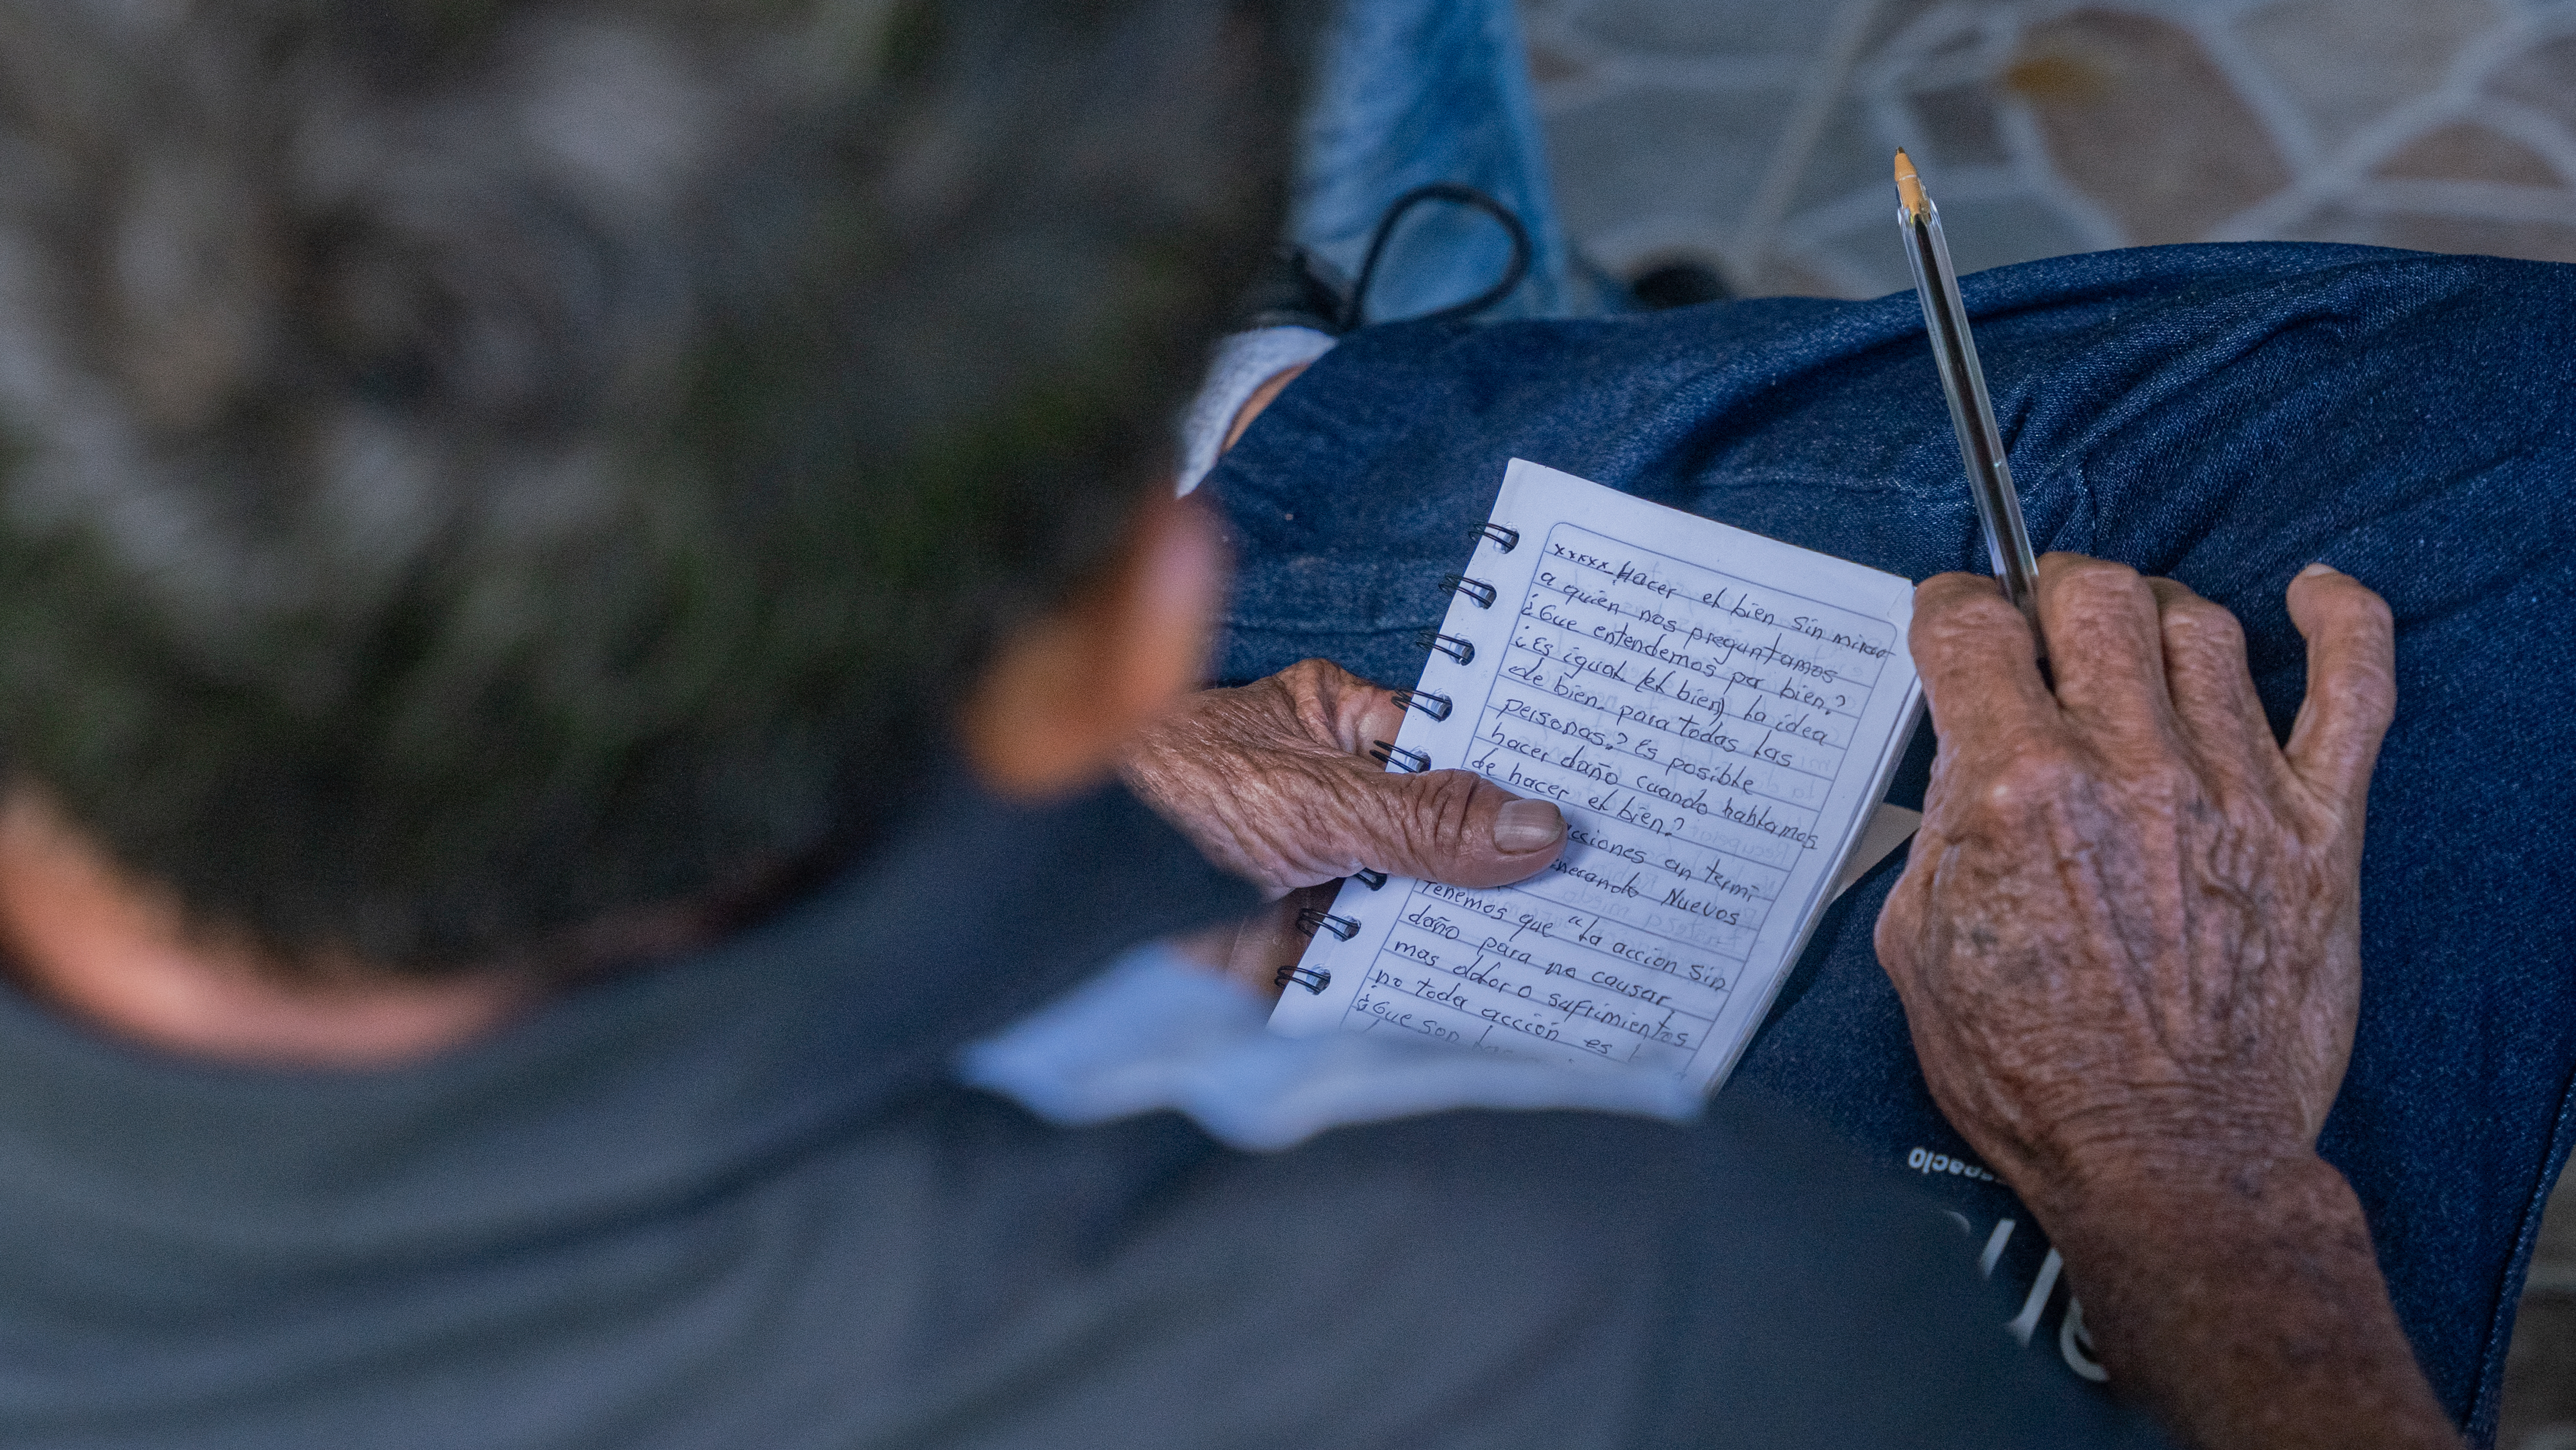 xxxxx Hacer el bien sin mirar
a quien nos preguntamos
¿Que entendemos por bien?
¿Es igual (el bien) la idea
de bien para todas las
personas? Es posible
hacer daño cuando hablamos
de hacer el bien?
acciones an termi
nerando Nuevos
Tenemos que "La acción sin
daño para no causar
mas dolor o sufrimientos
no toda acción es
¿Que son